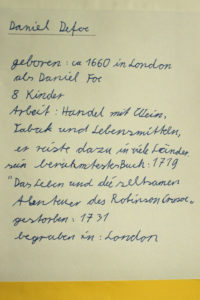 Daniel Defoe
geboren: ca 1660 in London
als Daniel Foe
8 Kinder
Arbeit: Handel mit Wein,
Tabak und Lebensmitteln,
er reiste dazu in viele Länder
sein berühmtestes Buch: 1719
"Das Leben und die seltsamen
Abenteuer des Robinson Crusoe"
gestorben: 1731
begraben in: London